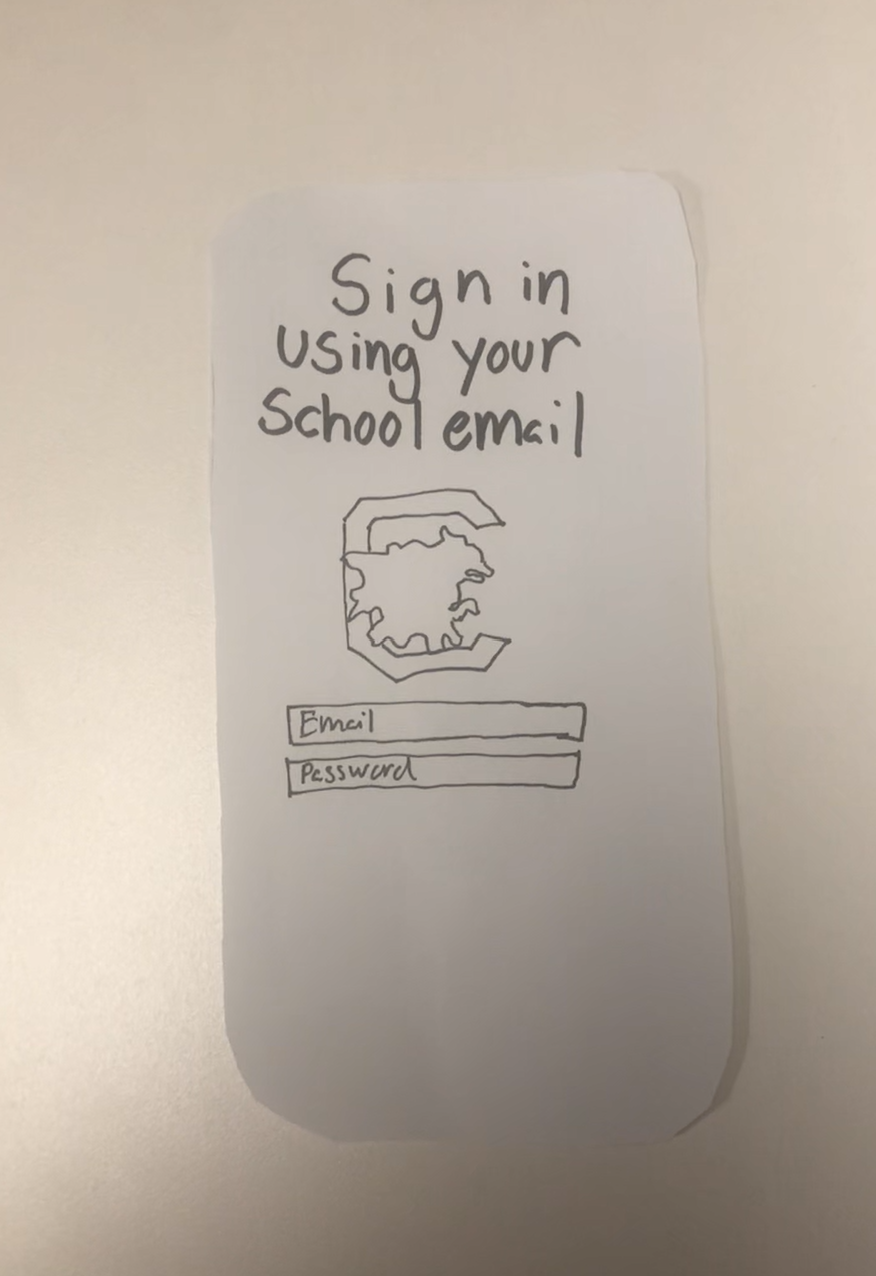 Sign in
using your
School email
Email
Password